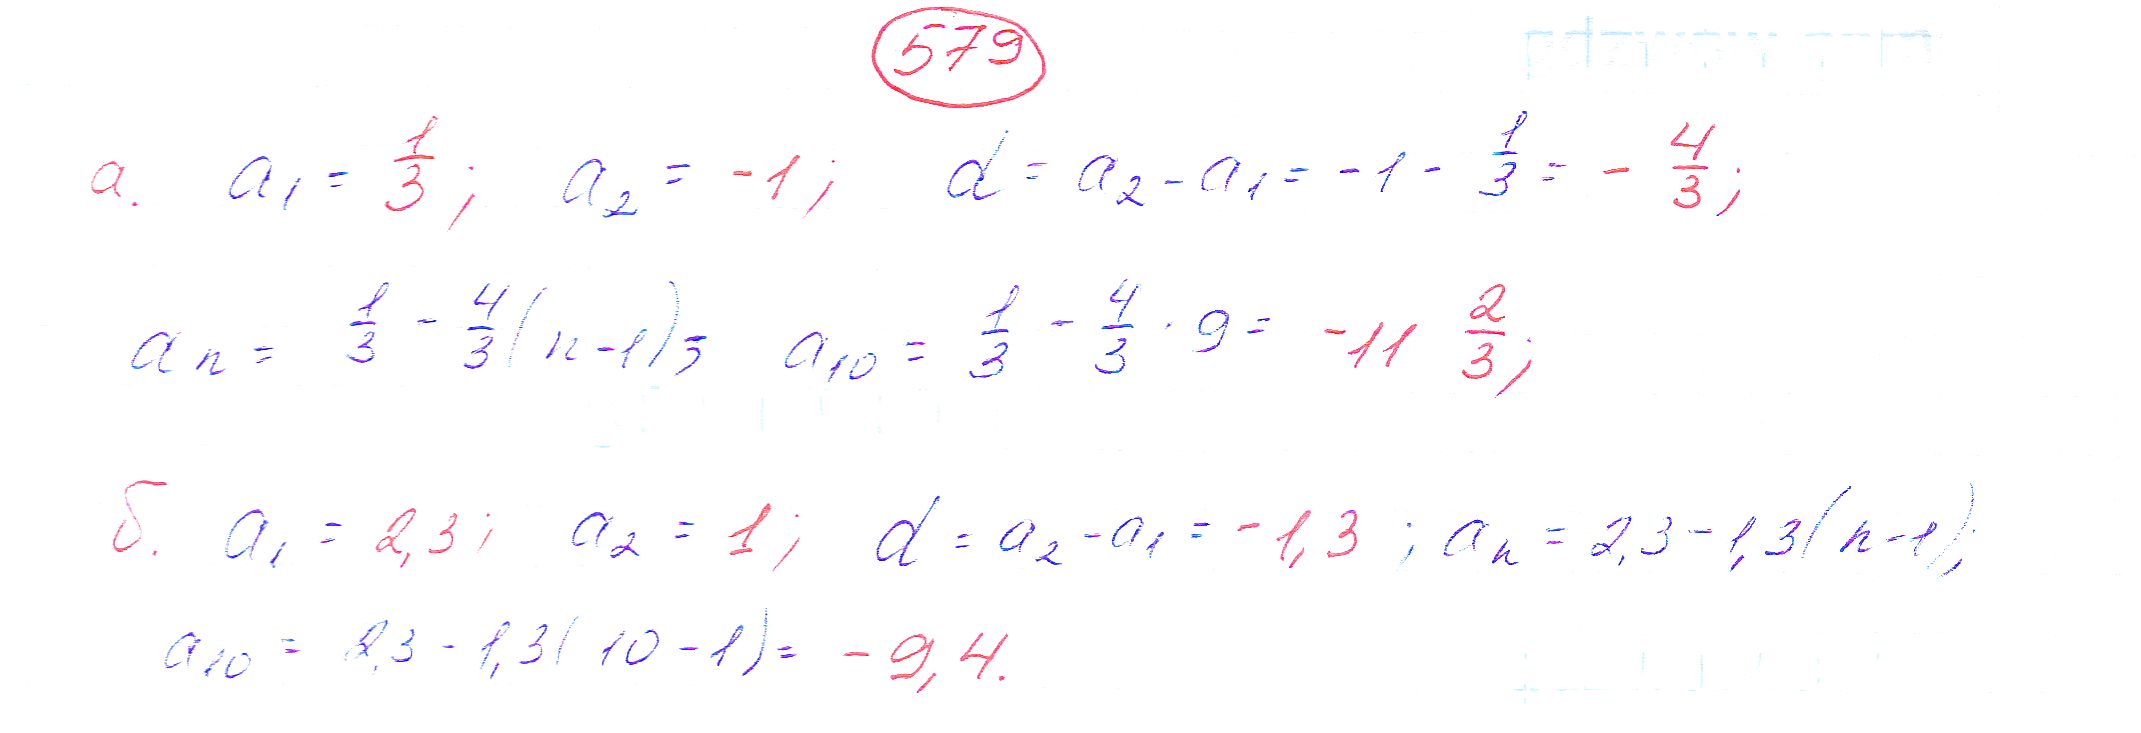 579
а. a₁ = 1/3; a₂ = -1; d = a₂ - a₁ = -1 - 1/3 = - 4/3;
aₙ = 1/3 - 4/3(n-1); a₁₀ = 1/3 - 4/3 · 9 = -11 2/3;
б. a₁ = 2,3; a₂ = 1; d = a₂ - a₁ = -1,3; aₙ = 2,3 - 1,3(n-1);
a₁₀ = 2,3 - 1,3(10-1) = -9,4.